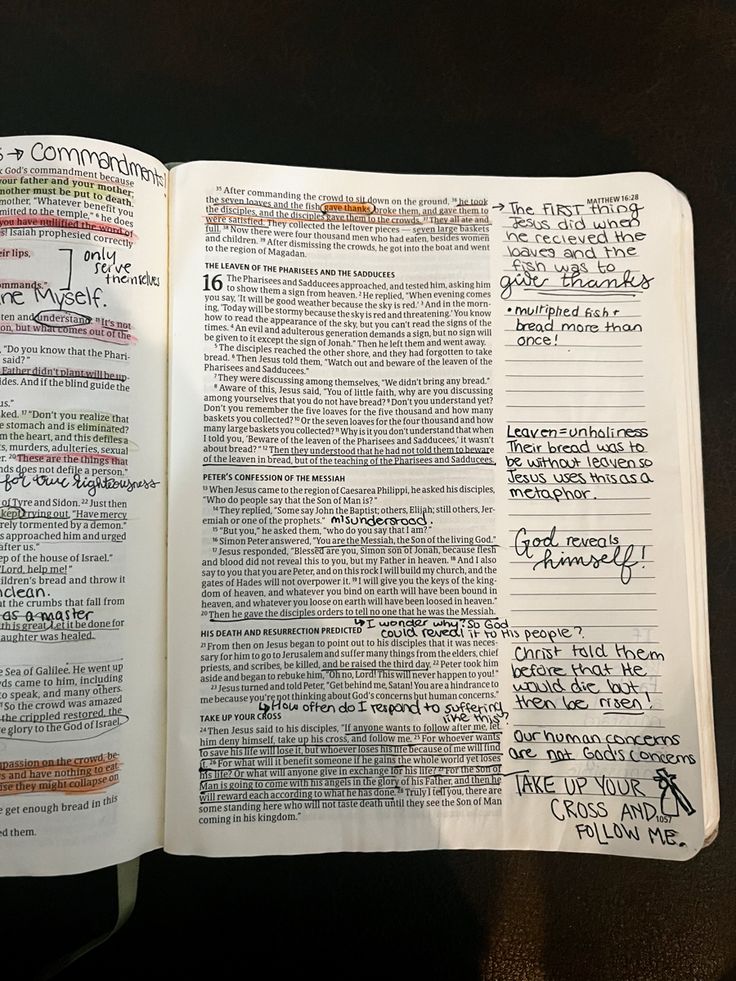 s → Commandments!
God's commandment because
your father and your mother;
mother must be put to death.
mother, "Whatever benefit you
mitted to the temple," ⁶ he does
you have nullified the word of
s! Isaiah prophesied correctly
eir lips,
only
serve
themselves
ommands."
ne Myself.
ten and understand: ¹¹ It's not
on, but what comes out of the
, "Do you know that the Phari-
said?"
Father didn't plant will be up-
ides. And if the blind guide the
us."
ked. ¹⁷ "Don't you realize that
e stomach and is eliminated?
m the heart, and this defiles a
s, murders, adulteries, sexual
r. ²⁰ These are the things that
nds does not defile a person."
for true Righteousness
of Tyre and Sidon. ²² Just then
kept crying out, "Have mercy
rely tormented by a demon."
s approached him and urged
after us."
ep of the house of Israel."
"Lord, help me!"
ildren's bread and throw it
nclean.
at the crumbs that fall from
as a master
th is great. Let it be done for
aughter was healed.
e Sea of Galilee. He went up
ds came to him, including
o speak, and many others.
So the crowd was amazed
the crippled restored, the
e glory to the God of Israel.
mpassion on the crowd, be-
s and have nothing to eat.
ise they might collapse on
e get enough bread in this
ed them.
MATTHEW 16:28
³⁵ After commanding the crowd to sit down on the ground, ³⁶ he took
the seven loaves and the fish, gave thanks, broke them, and gave them to
the disciples, and the disciples gave them to the crowds. ³⁷ They all ate and
were satisfied. They collected the leftover pieces — seven large baskets
full. ³⁸ Now there were four thousand men who had eaten, besides women
and children. ³⁹ After dismissing the crowds, he got into the boat and went
to the region of Magadan.
THE LEAVEN OF THE PHARISEES AND THE SADDUCEES
16 The Pharisees and Sadducees approached, and tested him, asking him
to show them a sign from heaven. ² He replied, "When evening comes
you say, 'It will be good weather because the sky is red.' ³ And in the morn-
ing, 'Today will be stormy because the sky is red and threatening.' You know
how to read the appearance of the sky, but you can't read the signs of the
times. ⁴ An evil and adulterous generation demands a sign, but no sign will
be given to it except the sign of Jonah." Then he left them and went away.
⁵ The disciples reached the other shore, and they had forgotten to take
bread. ⁶ Then Jesus told them, "Watch out and beware of the leaven of the
Pharisees and Sadducees."
⁷ They were discussing among themselves, "We didn't bring any bread."
⁸ Aware of this, Jesus said, "You of little faith, why are you discussing
among yourselves that you do not have bread? ⁹ Don't you understand yet?
Don't you remember the five loaves for the five thousand and how many
baskets you collected? ¹⁰ Or the seven loaves for the four thousand and how
many large baskets you collected? ¹¹ Why is it you don't understand that when
I told you, 'Beware of the leaven of the Pharisees and Sadducees,' it wasn't
about bread?" ¹² Then they understood that he had not told them to beware
of the leaven in bread, but of the teaching of the Pharisees and Sadducees.
PETER'S CONFESSION OF THE MESSIAH
¹³ When Jesus came to the region of Caesarea Philippi, he asked his disciples,
"Who do people say that the Son of Man is?"
¹⁴ They replied, "Some say John the Baptist; others, Elijah; still others, Jer-
emiah or one of the prophets." misunderstood.
¹⁵ "But you," he asked them, "who do you say that I am?"
¹⁶ Simon Peter answered, "You are the Messiah, the Son of the living God."
¹⁷ Jesus responded, "Blessed are you, Simon son of Jonah, because flesh
and blood did not reveal this to you, but my Father in heaven. ¹⁸ And I also
say to you that you are Peter, and on this rock I will build my church, and the
gates of Hades will not overpower it. ¹⁹ I will give you the keys of the king-
dom of heaven, and whatever you bind on earth will have been bound in
heaven, and whatever you loose on earth will have been loosed in heaven."
²⁰ Then he gave the disciples orders to tell no one that he was the Messiah.
↳ I wonder why? So God
could reveal it to His people?
HIS DEATH AND RESURRECTION PREDICTED
²¹ From then on Jesus began to point out to his disciples that it was neces-
sary for him to go to Jerusalem and suffer many things from the elders, chief
priests, and scribes, be killed, and be raised the third day. ²² Peter took him
aside and began to rebuke him, "Oh no, Lord! This will never happen to you!"
²³ Jesus turned and told Peter, "Get behind me, Satan! You are a hindrance to
me because you're not thinking about God's concerns but human concerns."
↳ How often do I respond to suffering
like this?
TAKE UP YOUR CROSS
²⁴ Then Jesus said to his disciples, "If anyone wants to follow after me, let
him deny himself, take up his cross, and follow me. ²⁵ For whoever wants
to save his life will lose it, but whoever loses his life because of me will find
it. ²⁶ For what will it benefit someone if he gains the whole world yet loses
his life? Or what will anyone give in exchange for his life? ²⁷ For the Son of
Man is going to come with his angels in the glory of his Father, and then he
will reward each according to what he has done. ²⁸ Truly I tell you, there are
some standing here who will not taste death until they see the Son of Man
coming in his kingdom."
→ The FIRST thing
Jesus did when
he recieved the
loaves and the
fish was to
give thanks
• multiplied fish +
bread more than
once!
Leaven=unholiness
Their bread was to
be without leaven so
Jesus uses this as a
metaphor.
God reveals
himself!
Christ told them
before that He
would die but
then be risen!
our human concerns
are not God's concerns
TAKE UP YOUR
CROSS AND
FOLLOW ME.
1057